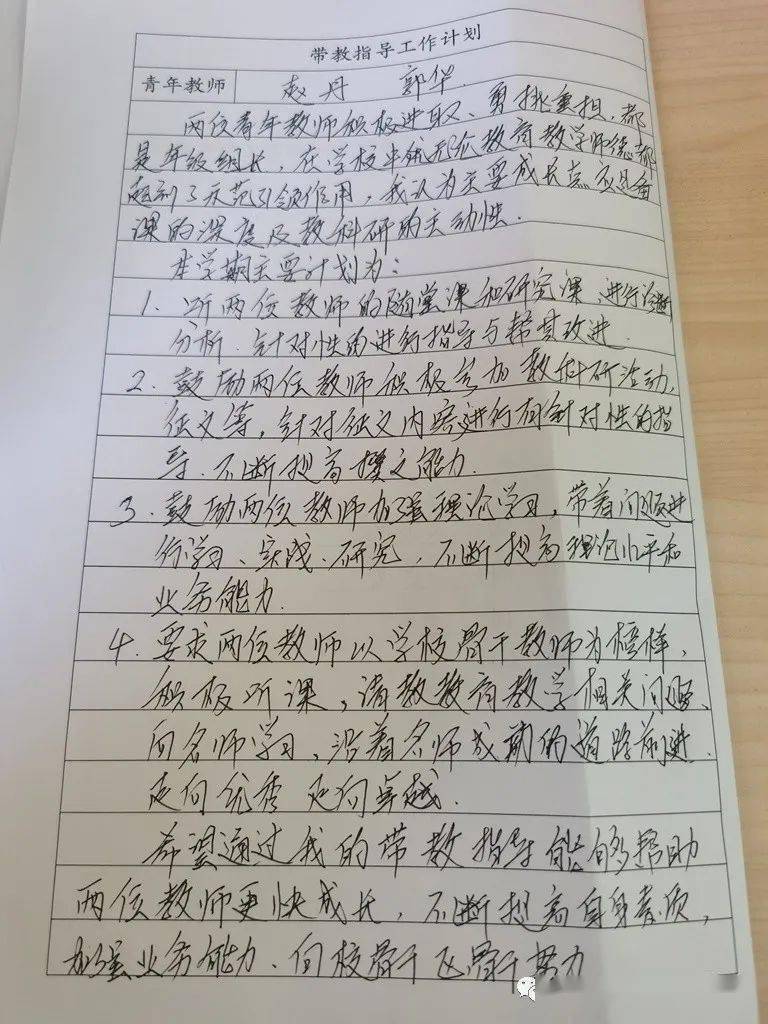 带教指导工作计划
青年教师 赵丹 郭华
两位青年教师积极进取、勇挑重担,都
是年级组长,在学校中无论教育教学师德都
起到了示范引领作用,我认为主要成长点应是备
课的深度及教科研的主动性.
本学期主要计划为:
1. 听两位教师的随堂课和研究课,进行诊断
分析.针对性的进行指导与帮其改进.
2. 鼓励两位教师积极参加教科研活动,
征文等,针对征文内容进行有针对性的指
导.不断提高撰文能力.
3. 鼓励两位教师加强理论学习,带着问题进
行学习、实践、研究,不断提高理论水平和
业务能力.
4. 要求两位教师以学校骨干教师为榜样,
积极听课,请教教育教学相关问题、
向名师学习,沿着名师成功的道路前进.
走向优秀 走向卓越.
希望通过我的带教指导能够帮助
两位教师更快成长,不断提高自身素质,
加强业务能力、向校骨干区骨干努力